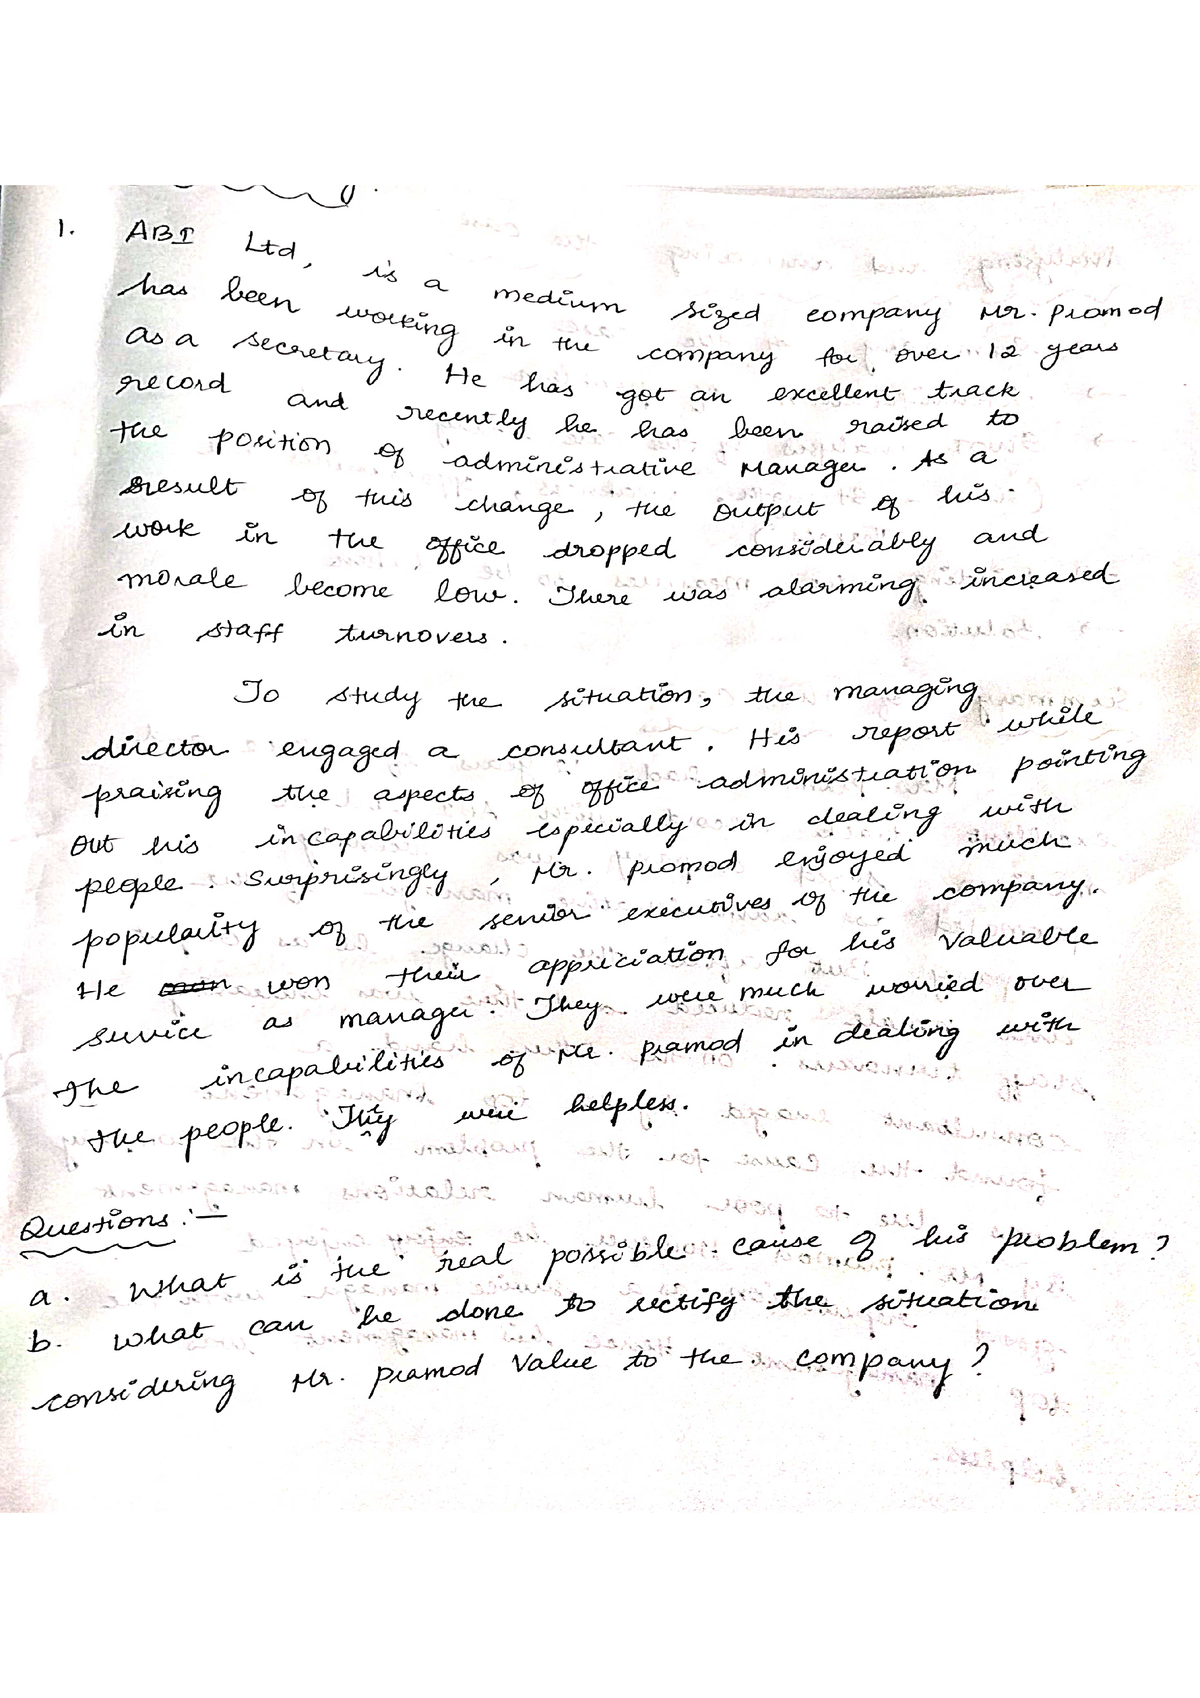 1. ABI Ltd, is a medium sized company Mr. Promod
has been working in the company for over 12 years
as a secretary. He has got an excellent track
record and recently he has been raised to
the position of administrative Manager. As a
result of this change, the output of his
work in the office dropped considerably and
morale become low. There was alarming increased
in staff turnovers.
To study the situation, the managing
director engaged a consultant. His report while
praising the aspects of office administration pointing
out his incapabilities especially in dealing with
people. Surprisingly, Mr. Promod enjoyed much
popularity of the senior executives of the company.
He won their appreciation for his valuable
service as manager. They were much worried over
the incapabilities of Mr. pramod in dealing with
the people. They were helpless.
Questions:-
a. What is the real possible cause of his problem?
b. What can be done to rectify the situation
considering Mr. Pramod value to the company?